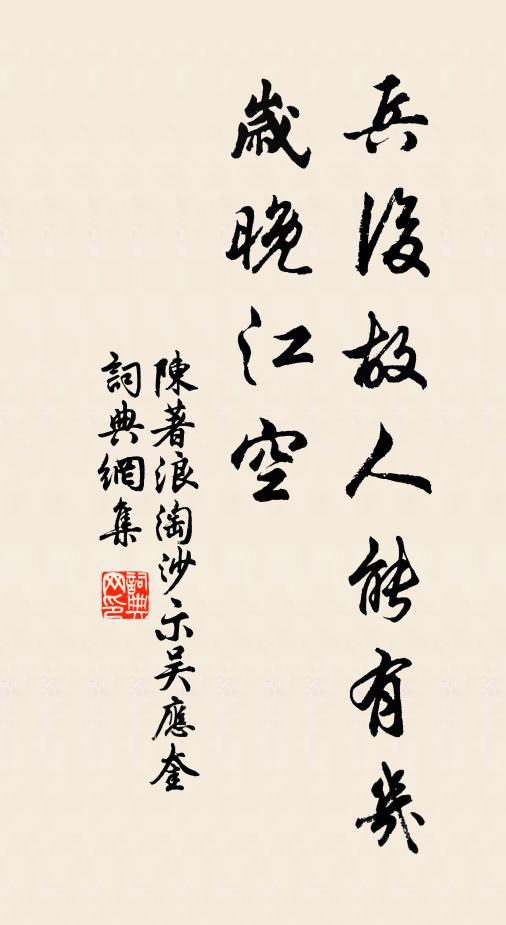 兵後故人能有幾
歲晚江空
陳著浪淘沙示吳應奎
詞典網集
詞典网印